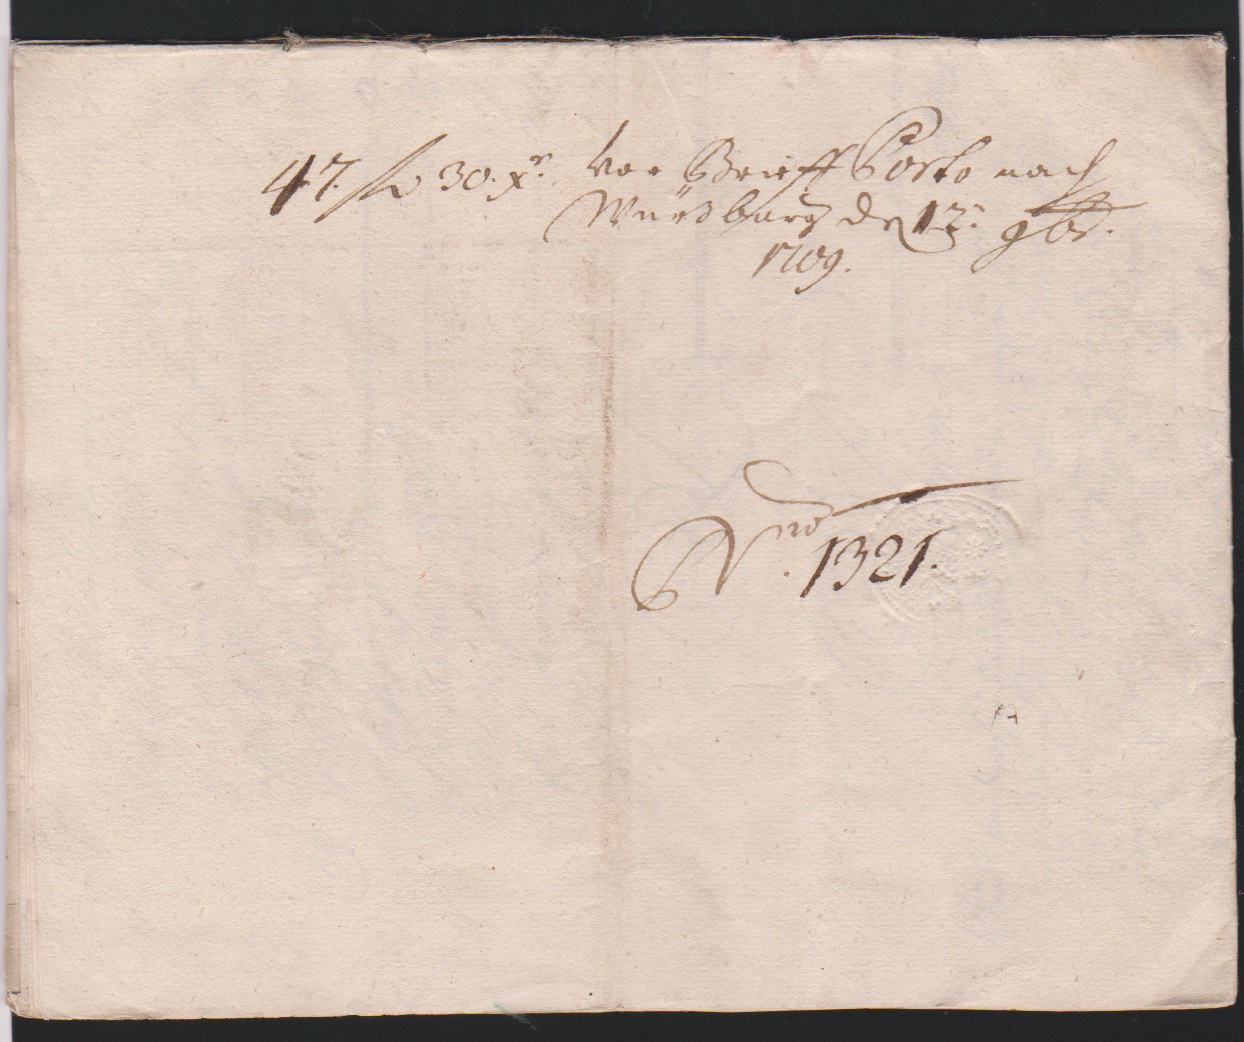 47. fl 30. xr. vor Brieff Porto nach
Würzburg de 12. 9br.
1709.
Nro. 1321.